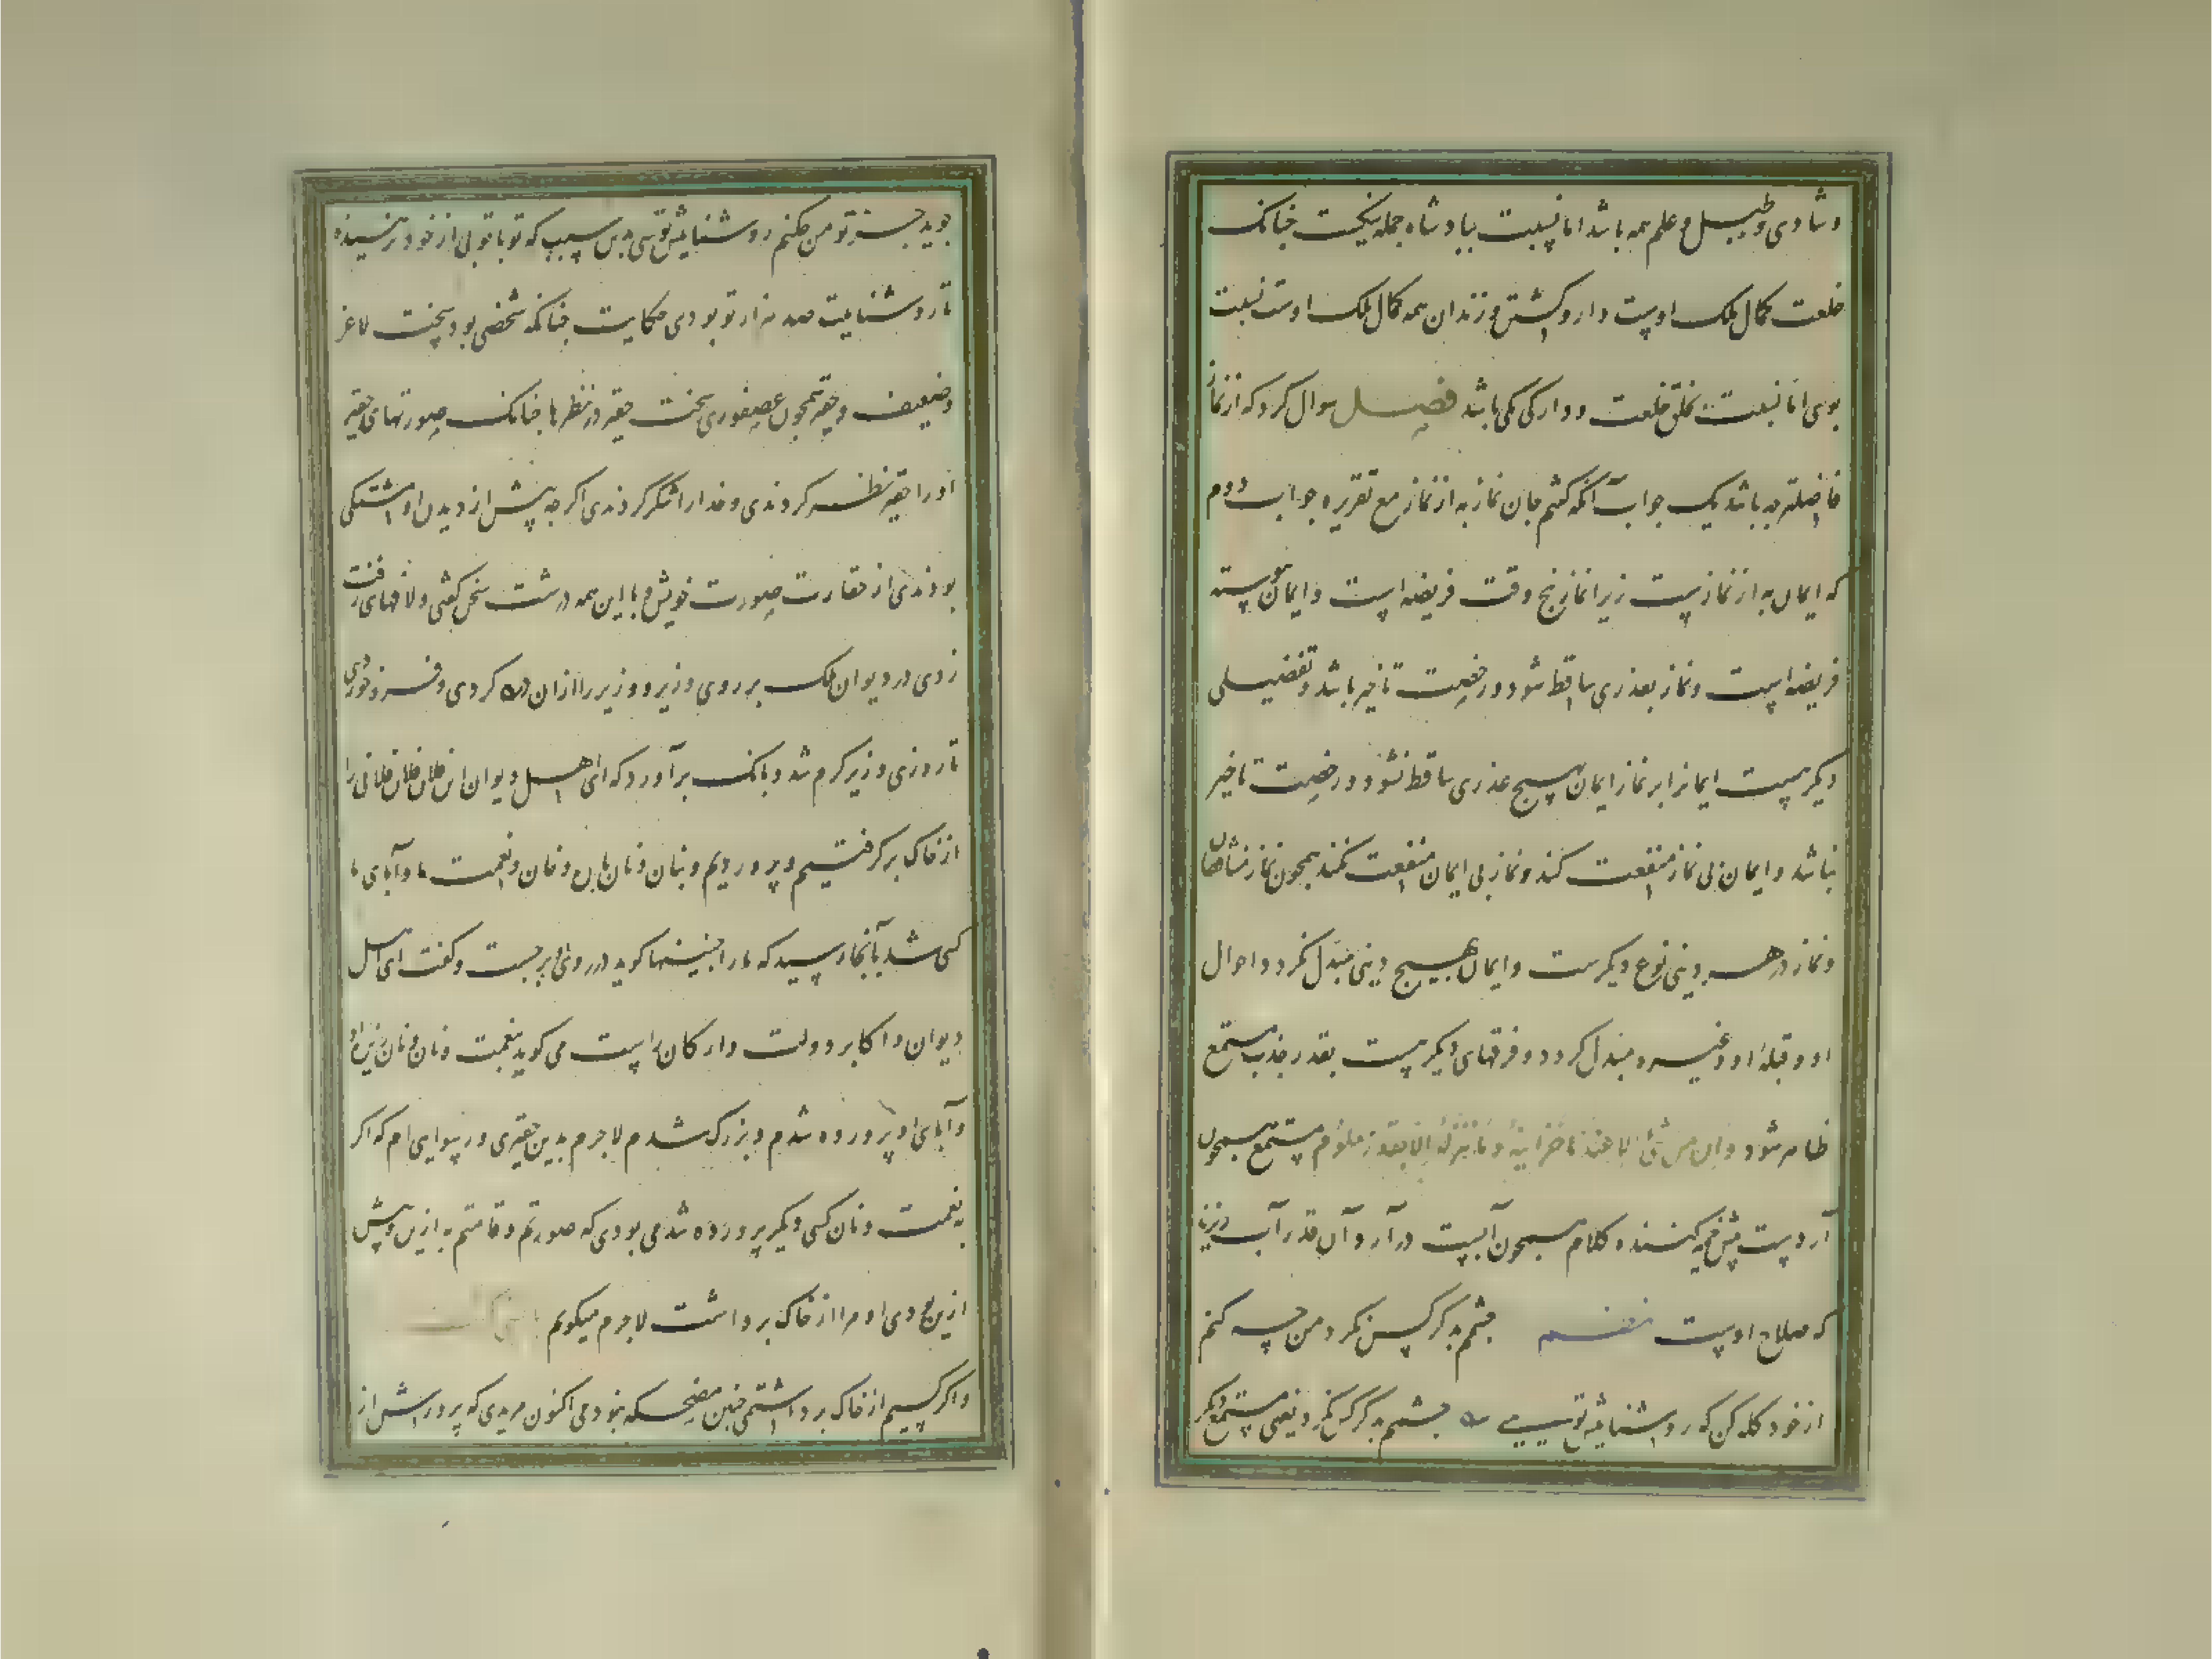 و شادی و طبل و علم همه باشد اما نسبت بپادشاه جمله نیکست چنانک
خلعت کمال ملک اوست دار و کشتن و زندان همه کمال ملک اوست نسبت
بوی اما نسبت بخلق خلعت و دار کی یکی باشد فصل سوال کرد که از نماز
فاضلتر چه باشد یک جواب آنکه گفتیم جان نماز به از نماز مع تقریره جواب دوم
که ایمان به از نمازست زیرا نماز پنج وقت فریضه است و ایمان پیوسته
فریضه است و نماز بعذری ساقط شود و رخصت تاخیر باشد و تفضیلی
دیگر هست ایمانرا بر نماز ایمان بهیچ عذری ساقط نشود و رخصت تاخیر
نباشد و ایمان بی نماز منفعت کند و نماز بی ایمان منفعت نکند همچون نماز منافقان
و نماز در هر دینی نوع دیگرست و ایمان بهیچ دینی مبدل نگردد احوال
او و قبلهٔ او و غیره مبدل گردد و فرقهای دیگر هست بقدر جذب مستمع
ظاهر شود و ان من شیٔ الا عندنا خزاینه و ما ننزله الا بقدر معلوم مستمع همچون
آردست پیش خمیر کننده کلام همچون آبست در آرد آن قدر آب ریزند
که صلاح اوست نظم چشمم بدگر کس نگرد من چه کنم
از خود گله کن که روشناییش تویی چشمم بدگر کس نگرد یعنی مستمع دیگر
جوید جز تو من چکنم روشناییش توی بدین سبب که تو با توی از خود نرهیده
تا روشناییت صد هزار تو بودی حکایت چنانکه شخصی بود سخت لاغر
و ضعیف و حقیر همچون عصفوری سخت حقیر در نظرها چنانک صورتهای حقیر
او را حقیر نظر کردندی و خدا را شکر کردندی اگرچه پیش از دیدن او متشکی
بودندی از حقارت صورت خویش و با این همه درشت سخن گفتی و لافهای زفت
زدی در دیوان ملک بر روی وزیر و وزیر را از آن درد کردی و فرو خوردی
تا روزی وزیر گرم شد و بانگ برآورد که ای اهل دیوان این فلان فلانی را
از خاک برگرفتیم و پروردیم و بنان و نان و نعمت ما و آبای ما
کسی شد بآنجا رسید که ما را چنینها گوید در روی او برجست و گفت ای اهل
دیوان و اکابر دولت و ارکان راست می‌گوید بنعمت و نان
و آبای او پرورده شدم و بزرگ شدم لاجرم بدین حقیری و رسوایی ام که اگر
بنعمت و نان کسی دیگر پرورده شدمی بودی که صورتم و قامتم به ازین
او مرا از خاک برداشت لاجرم میگویم
و اگر کسیم از خاک برداشتی چنین مضحکه نبودمی اکنون مریدی که پرورش از